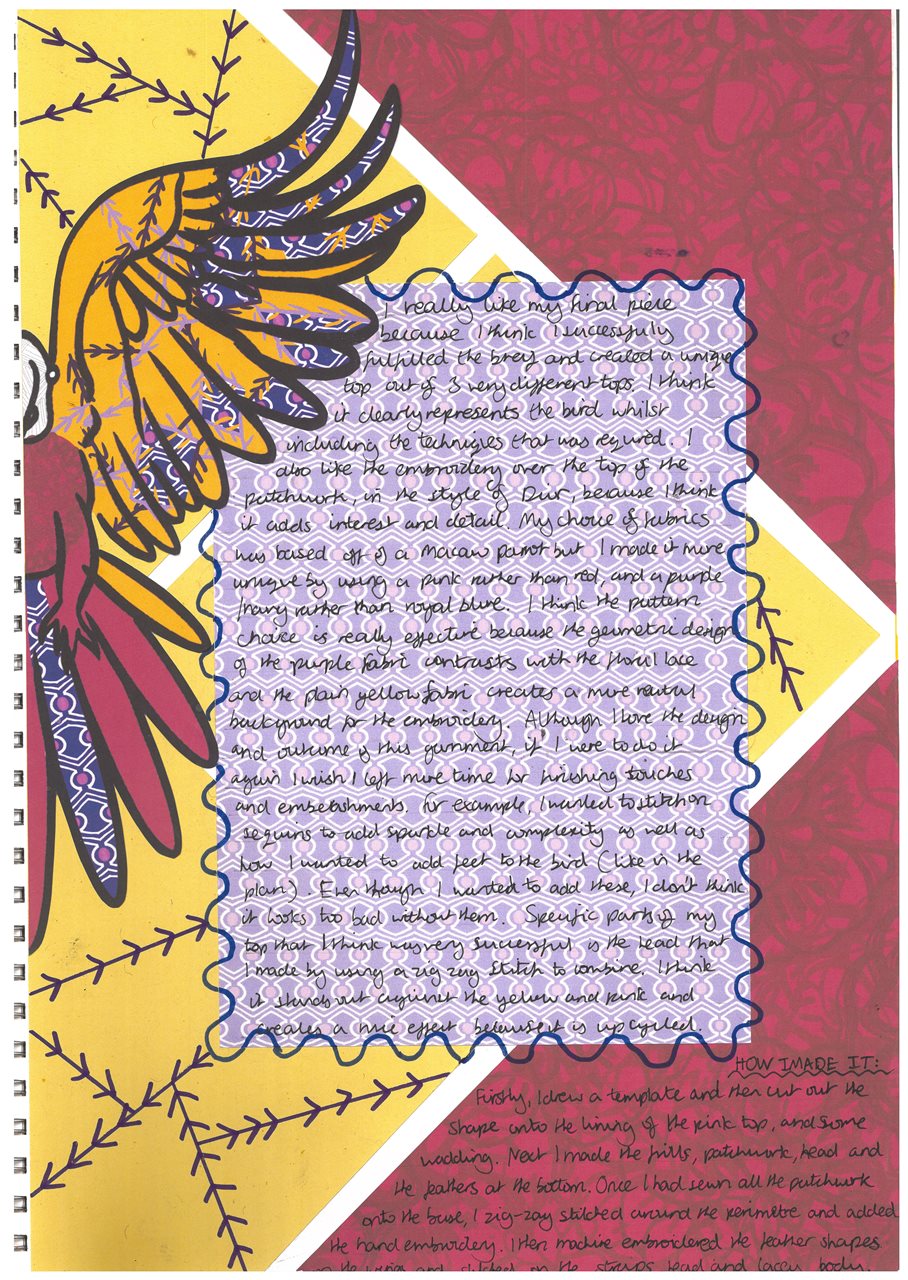 I really like my final piece
because I think I successfully
fulfilled the breif and created a unique
top out of 3 very different tops. I think
it clearly represents the bird whilst
including the techniques that was required. I
also like the embroidery over the top of the
patchwork, in the style of Dur, because I think
it adds interest and detail. My choice of fabrics
was based off of a macaw parrot but I made it more
unique by using a pink rather than red, and a purple
/navy rather than royal blue. I think the pattern
choice is really effective because the geometric design
of the purple fabric contrasts with the floral lace
and the plain yellow fabric creates a more neutral
background for the embroidery. Although I love the design
and outcome of this garment, if I were to do it
again I wish I left more time for finishing touches
and embelishments. For example, I wanted to stitch on
sequins to add sparkle and complexity as well as
how I wanted to add feet to the bird (like in the
plan). Even though I wanted to add these, I don't think
it looks too bad without them. Specific parts of my
top that I think was very successful is the head that
I made by using a zig zag stitch to combine. I think
it stands out against the yellow and pink and
creates a nice effect because it is upcycled.
HOW I MADE IT:
Firstly, I drew a template and then cut out the
shape onto the lining of the pink top, and some
wadding. Next I made the frills, patchwork, head and
the feathers at the bottom. Once I had sewn all the patchwork
onto the base, I zig-zag stitched around the perimetre and added
the hand embroidery. I then machine embroidered the feather shapes
the wings and stitched on the straps head and lacey body.